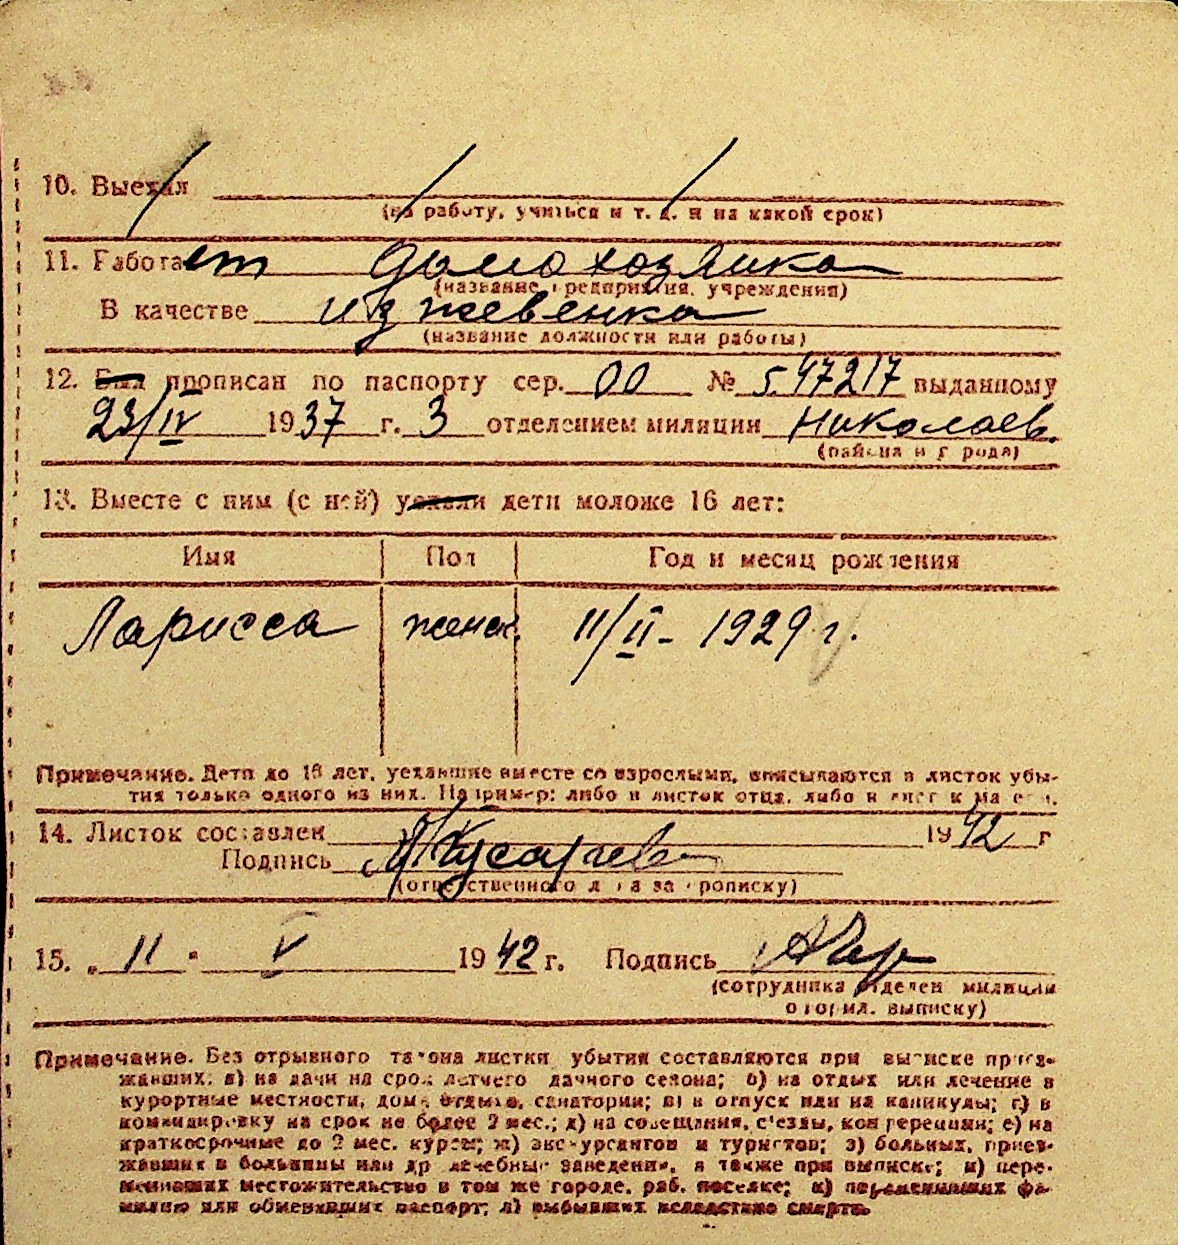 10. Выехал
(на работу, учиться и т. д. и на какой срок)
11. Работает домохозяйка
(название предприятия, учреждения)
В качестве иждевенка
(название должности или работы)
12. Был прописан по паспорту сер. 00 № 547217 выданному
23/IV 1937 г. 3 отделением милиции Николаев.
(района и города)
13. Вместе с ним (с ней) уехали дети моложе 16 лет:
Имя Пол Год и месяц рождения
Ларисса женск. 11/II - 1929 г.
Примечание. Дети до 16 лет, уехавшие вместе со взрослыми, вписываются в листок убы-
тия только одного из них. Например: либо в листок отца, либо в листок матери.
14. Листок составлен 1942 г
Подпись
(ответственного лица за прописку)
15. „ 11 " V 1942 г. Подпись
(сотрудника отделен милиции
оформл. выписку)
Примечание. Без отрывного талона листки убытия составляются при выписке приез-
жавших: а) на дачи на срок летнего дачного сезона; б) на отдых или лечение в
курортные местности, дома отдыха, санатории; в) в отпуск или на каникулы; г) в
командировку на срок не более 2 мес.; д) на совещания, с'езды, конференции; е) на
краткосрочные до 2 мес. курсы; ж) экскурсантов и туристов; з) больных, приез-
жавших в больницы или др лечебные заведения, а также при выписке; и) пере-
менивших местожительство в том же городе, раб. поселке; к) переменивших фа-
милию или обменявших паспорт; л) выбывших вследствие смерти.